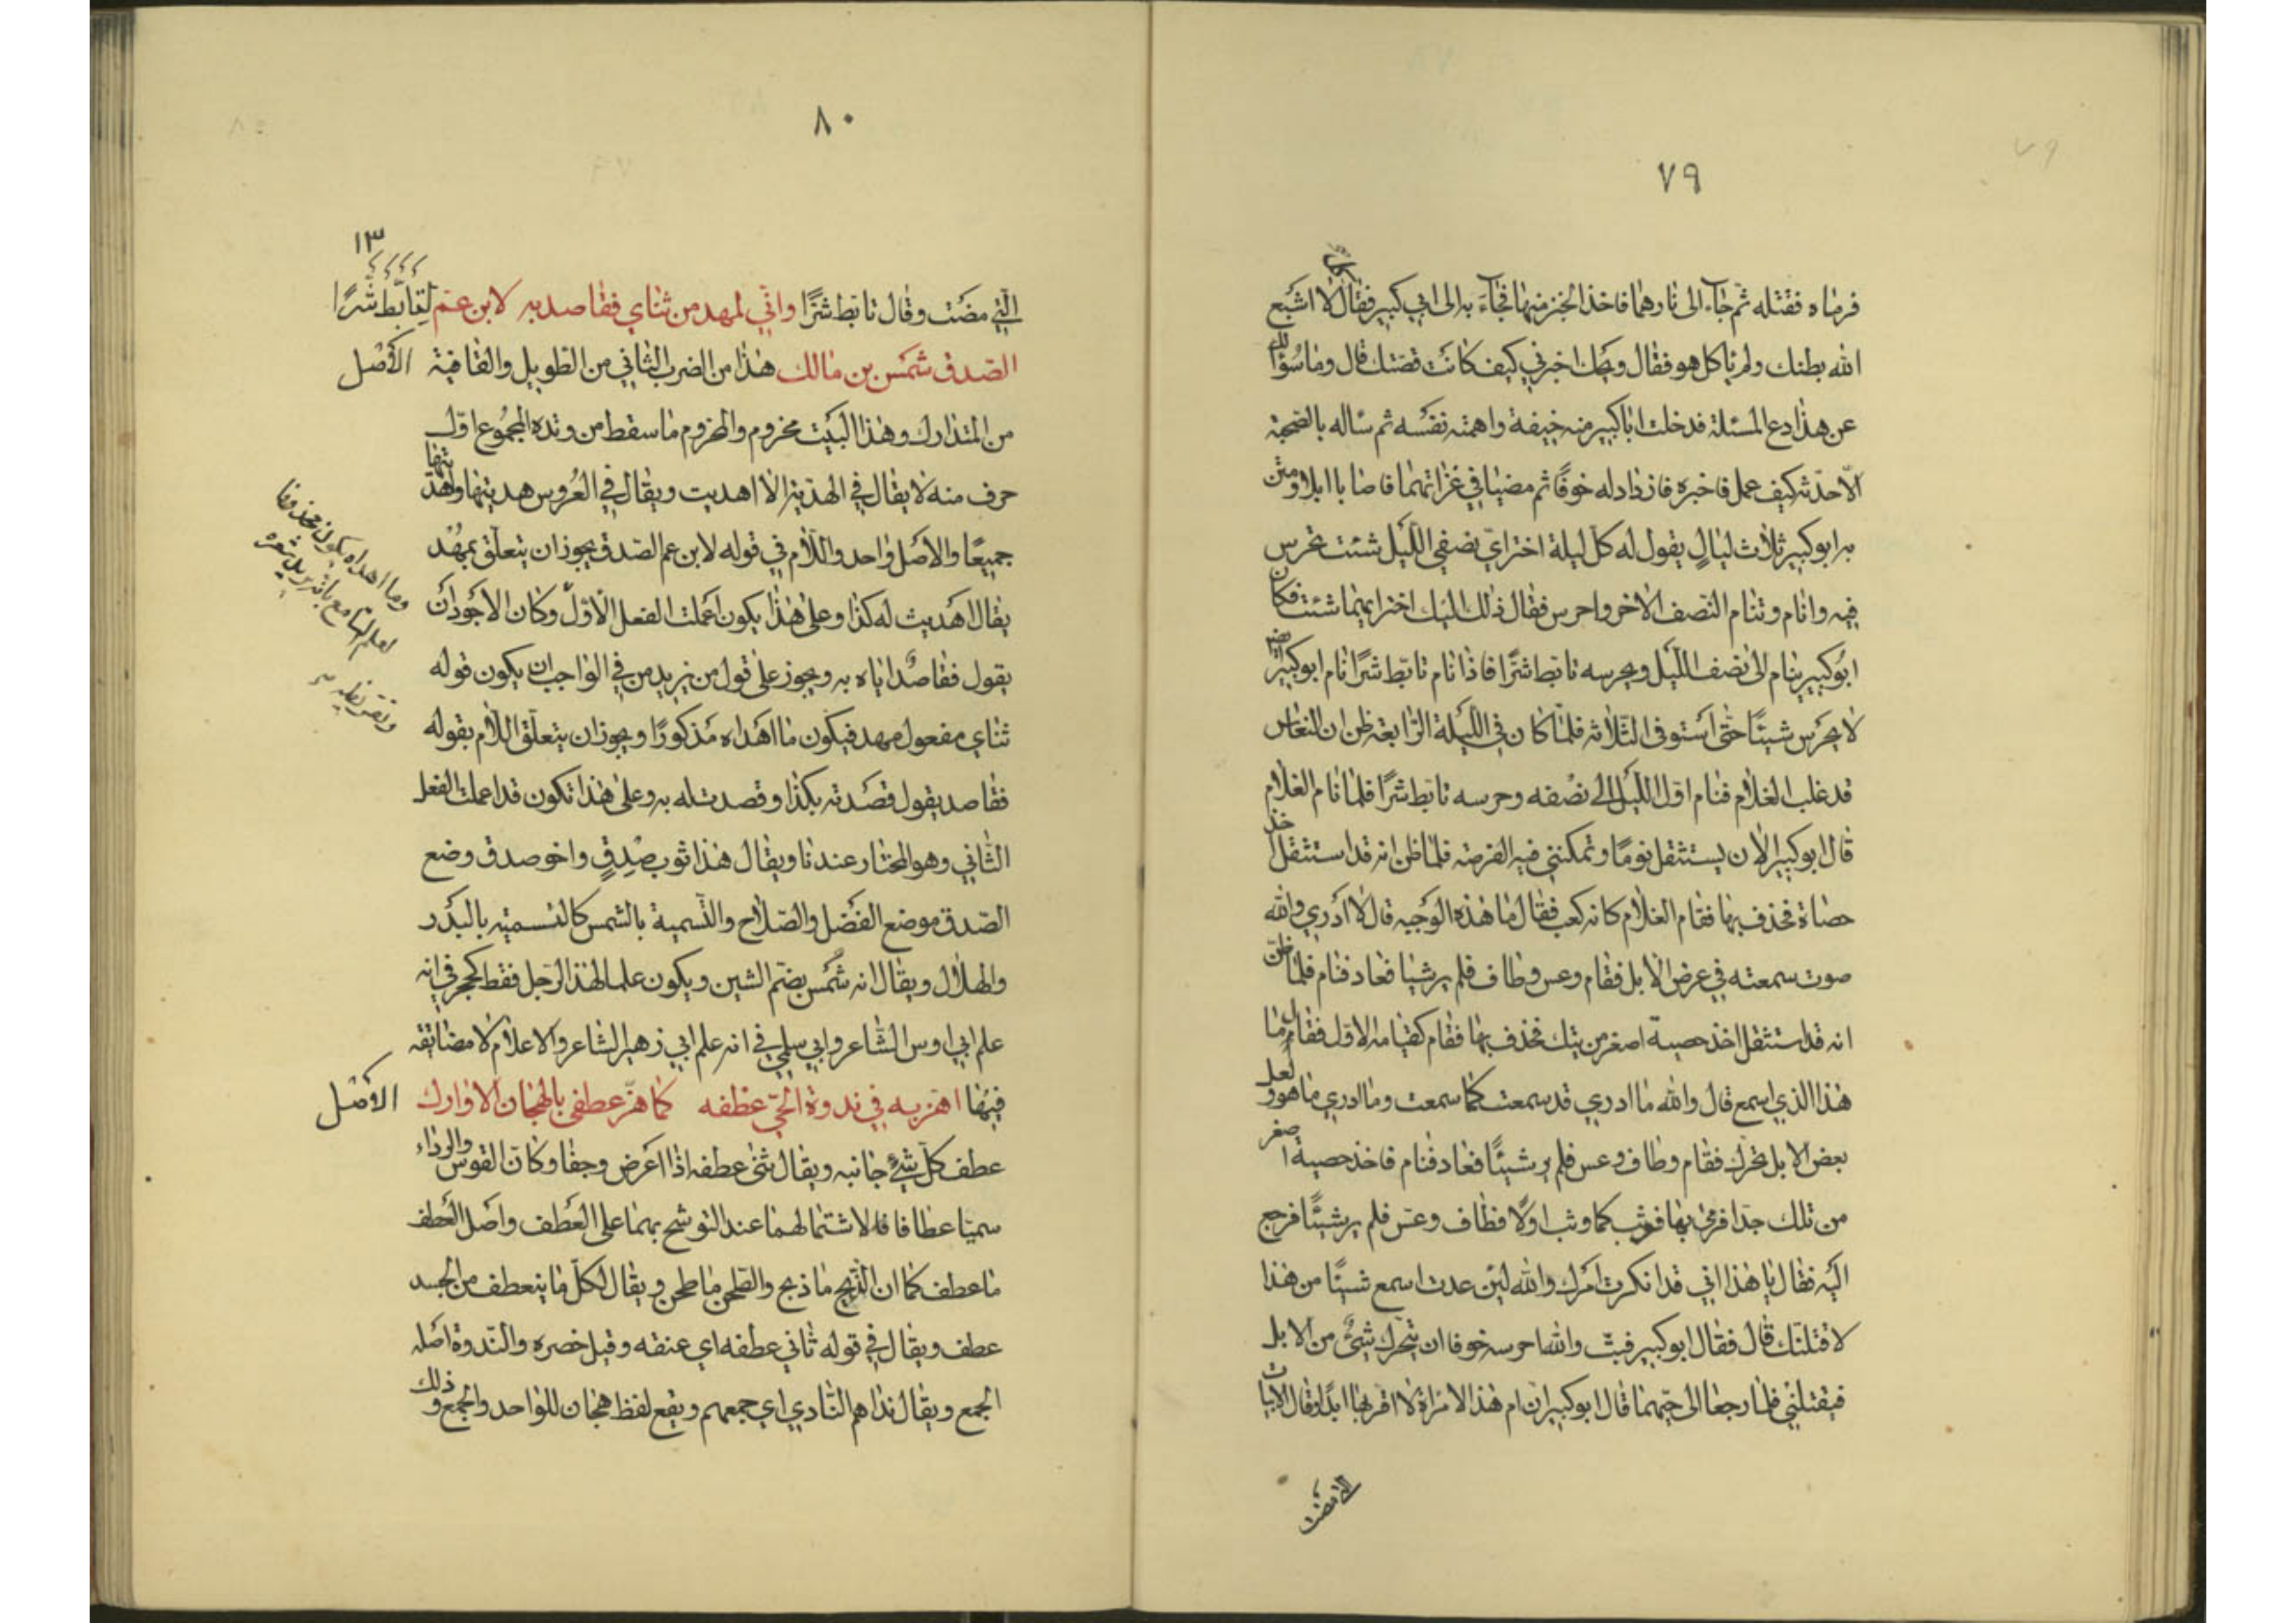 ٧٩
فرماه فقتله ثم جاء الى نارهما فاخذ الخبز منها فجاء به الى ابي كبير فقال كل لا اشبع
الله بطنك ولم ياكل هو فقال ويحك اخبرني كيف كانت قصتك قال وما سؤالك
عن هذا دع المسئلة فدخلت ابا كبير منه خيفة واهمته نفسه ثم ساله بالصحبة
الا حدثه كيف عمل فاخبره فازداد له خوفًا ثم مضيا في غزاتهما فاصابا ابلا ومتن
به ابو كبير ثلاث ليالٍ يقول له كل ليلة اختر اي نصفي الليل شئت تحرس
فيه وانام وتنام النصف الاخر واحرس فقال ذلك اليك اختر ايهما شئت فكان
ابو كبير ينام الى نصف الليل ويحرسه تابط شرًا فاذا نام تابط شرًا نام ابو كبير ايضا
لا يحرس شيئًا حتى استوفى الثلاثه فلما كان في الليلة الرابعة ظن ان النعاس
قد غلب الغلام فنام اول الليل الى نصفه وحرسه تابط شرًا فلما نام الغلام
قال ابو كبير الان يستثقل نومًا وتمكنني فيه الفرصة فلما ظن انه قد استثقل اخذ
حصاة فحذف بها فقام الغلام كانه كعب فقال ما هذه الوجبه قال لا ادري والله
صوت سمعته في عرض الابل فقام وعس وطاف فلم ير شيئا فعاد فنام فلما ظن
انه قد استثقل اخذ حصية اصغر من تيك فحذف بها فقام كقيامه الاول فقال ما
هذا الذي اسمع قال والله ما ادري قد سمعت كما سمعت وما ادري ما هو ولعل
بعض الابل تحرك فقام وطاف وعس فلم ير شيئًا فعاد فنام فاخذ حصية اصغر
من تلك جدا فرمى بها فوثب كما وثب اولًا فطاف وعس فلم ير شيئًا فرجع
اليه فقال يا هذا اني قد انكرت امرك والله لئن عدت اسمع شيئًا من هذا
لاقتلنك قال فقال ابو كبير فبت والله احرسه خوفا ان يتحرك شئ من الابل
فيقتلني فلما رجعا الى حيهما قال ابو كبير ان ام هذا لامراة لا اقربها ابدًا وقال الابيات
التي مضت
٨٠
١٣
التي مضت وقال تابط شرًا واني لمهد من ثنائي فقاصد به لابن عم لتابط شرًا
الصدق شمس بن مالك هذا من الضرب الثاني من الطويل والقافية الاصل
من المتدارك وهذا البيت مخروم والمخروم ما سقط من وتده المجموع اول
حرف منه لا يقال في الهدية الا اهديت ويقال في العروس هديتها واهديتها
جميعًا والاصل واحد واللام في قوله لابن عم الصدق يجوز ان يتعلق بمهد
يقال اهديت له كذا وعلى هذا يكون اعملت الفعل الاول وكان الاجود ان
يقول فقاصد اياه به ويجوز على قول من يزيد من في الواجب ان يكون قوله
ثناي مفعول مهد فيكون ما اهداه مذكورًا ويجوز ان يتعلق اللام بقوله
فقاصد يقول قصدته بكذا وقصدت له به وعلى هذا تكون قد اعملت الفعل
الثاني وهو المختار عندنا ويقال هذا ثوب صدقٍ واخو صدق وضع
الصدق موضع الفضل والصلاح والتسمية بالشمس كالتسميه بالبدر
والهلال ويقال انه شمس بضم الشين ويكون علما لهذا الرجل فقط كحجر في انه
علم ابي اوس الشاعر وابي سلمى في انه علم ابي زهير الشاعر والاعلام لا مضايقه
فيها اهز به في ندوة الحي عطفه كما هز عطفي بالهجان الاوارك الاصل
عطف كل شئ جانبه ويقال ثنى عطفه اذا اعرض وجفا وكان القوس والرداء
سميا عطافا لاشتمالهما عند التوشح بهما على العطف واصل العطف
ما عطف كما ان الذبح ما ذبح والطحن ما طحن ويقال لكل ما ينعطف من الجسد
عطف ويقال في قوله ثاني عطفه اي عنقه وقيل خصره والندوة اصله
الجمع ويقال نداهم النادي اي جمعهم ويقع لفظ هجان للواحد والجمع وذلك
وما اهداه يكون محذوفا